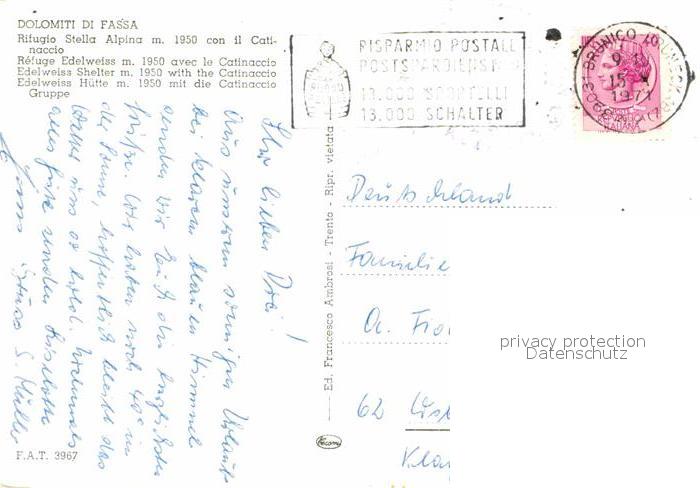 DOLOMITI DI FASSA
Rifugio Stella Alpina m. 1950 con il Cati-
naccio
Réfuge Edelweiss m. 1950 avec le Catinaccio
Edelweiss Shelter m. 1950 with the Catinaccio
Edelweiss Hütte m. 1950 mit die Catinaccio
Gruppe
RISPARMIO POSTALE
POSTSPARDIENST
13.000 SPORTELLI
13.000 SCHALTER
BRUNICO
15
1971
ITALIANA
Ihr lieben Drei!
Aus unserem sonnigen Urlaub
bei klarem blauen Himmel
senden wir Euch die herzlichsten
Grüße. Wir haben noch 40° in
der Sonne, hoffentlich bleibt das
Wetter uns so hold. Nochmals
alles Gute senden
S. Müller
F.A.T. 3967
Ed. Francesco Ambrosi - Trento - Ripr. vietata
Deutschland
Familie
62
privacy protection
Datenschutz